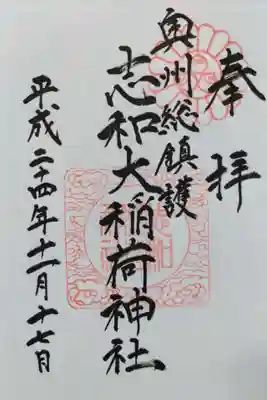 奉拝
奥州総鎮護
志和大稲荷神社
平成二十四年十一月十七日